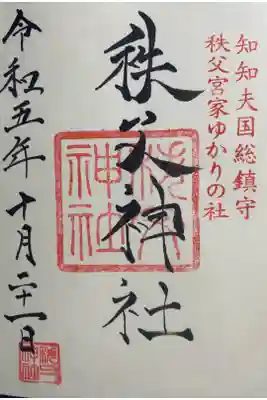 知知夫国総鎮守
秩父宮家ゆかりの社
秩父神社
秩父
神社
令和五年十月二十一日